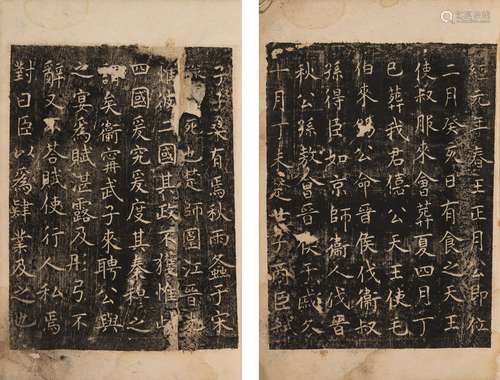 經元年春王正月公即位
二月癸亥日有食之天王
使叔服來會葬夏四月丁
巳葬我君僖公天王使毛
伯來錫公命晉侯伐衛叔
孫得臣如京師衛人伐晉
秋公孫敖會晉侯于戚冬
十月丁未楚世子商臣
子子桑有焉秋雨螽于宋
死也楚師圍江晉
惟彼二國其政不獲惟此
四國爰究爰度其秦穆之
謂矣衛甯武子來聘公與
之宴為賦湛露及彤弓不
辭又不荅賦使行人私焉
對曰臣以為肄業及之也